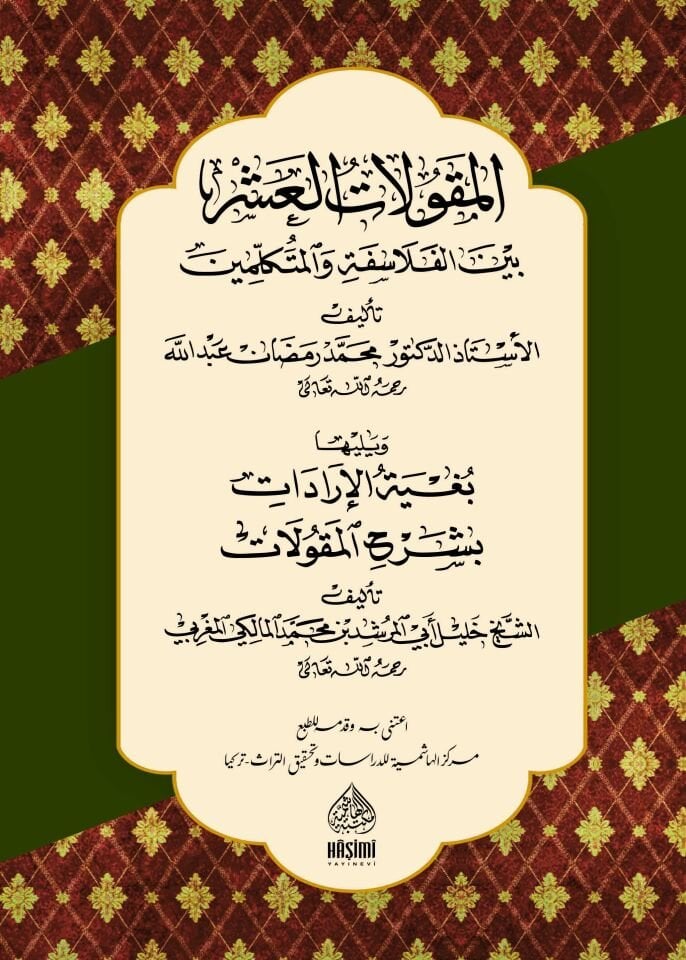 المقولات العشر
بين الفلاسفة والمتكلمين
تأليف
الأستاذ الدكتور محمد رمضان عبد الله
رحمه الله تعالى
ويليها
بغية الإرادات
بشرح المقولات
تأليف
الشيخ خليل أبي المرشد بن محمد المالكي المغربي
رحمه الله تعالى
اعتنى به وقدمه للطبع
مركز الهاشمية للدراسات وتحقيق التراث - تركيا
مكتبة الهاشمية
HÂŞİMÎ
YAYINEVİ